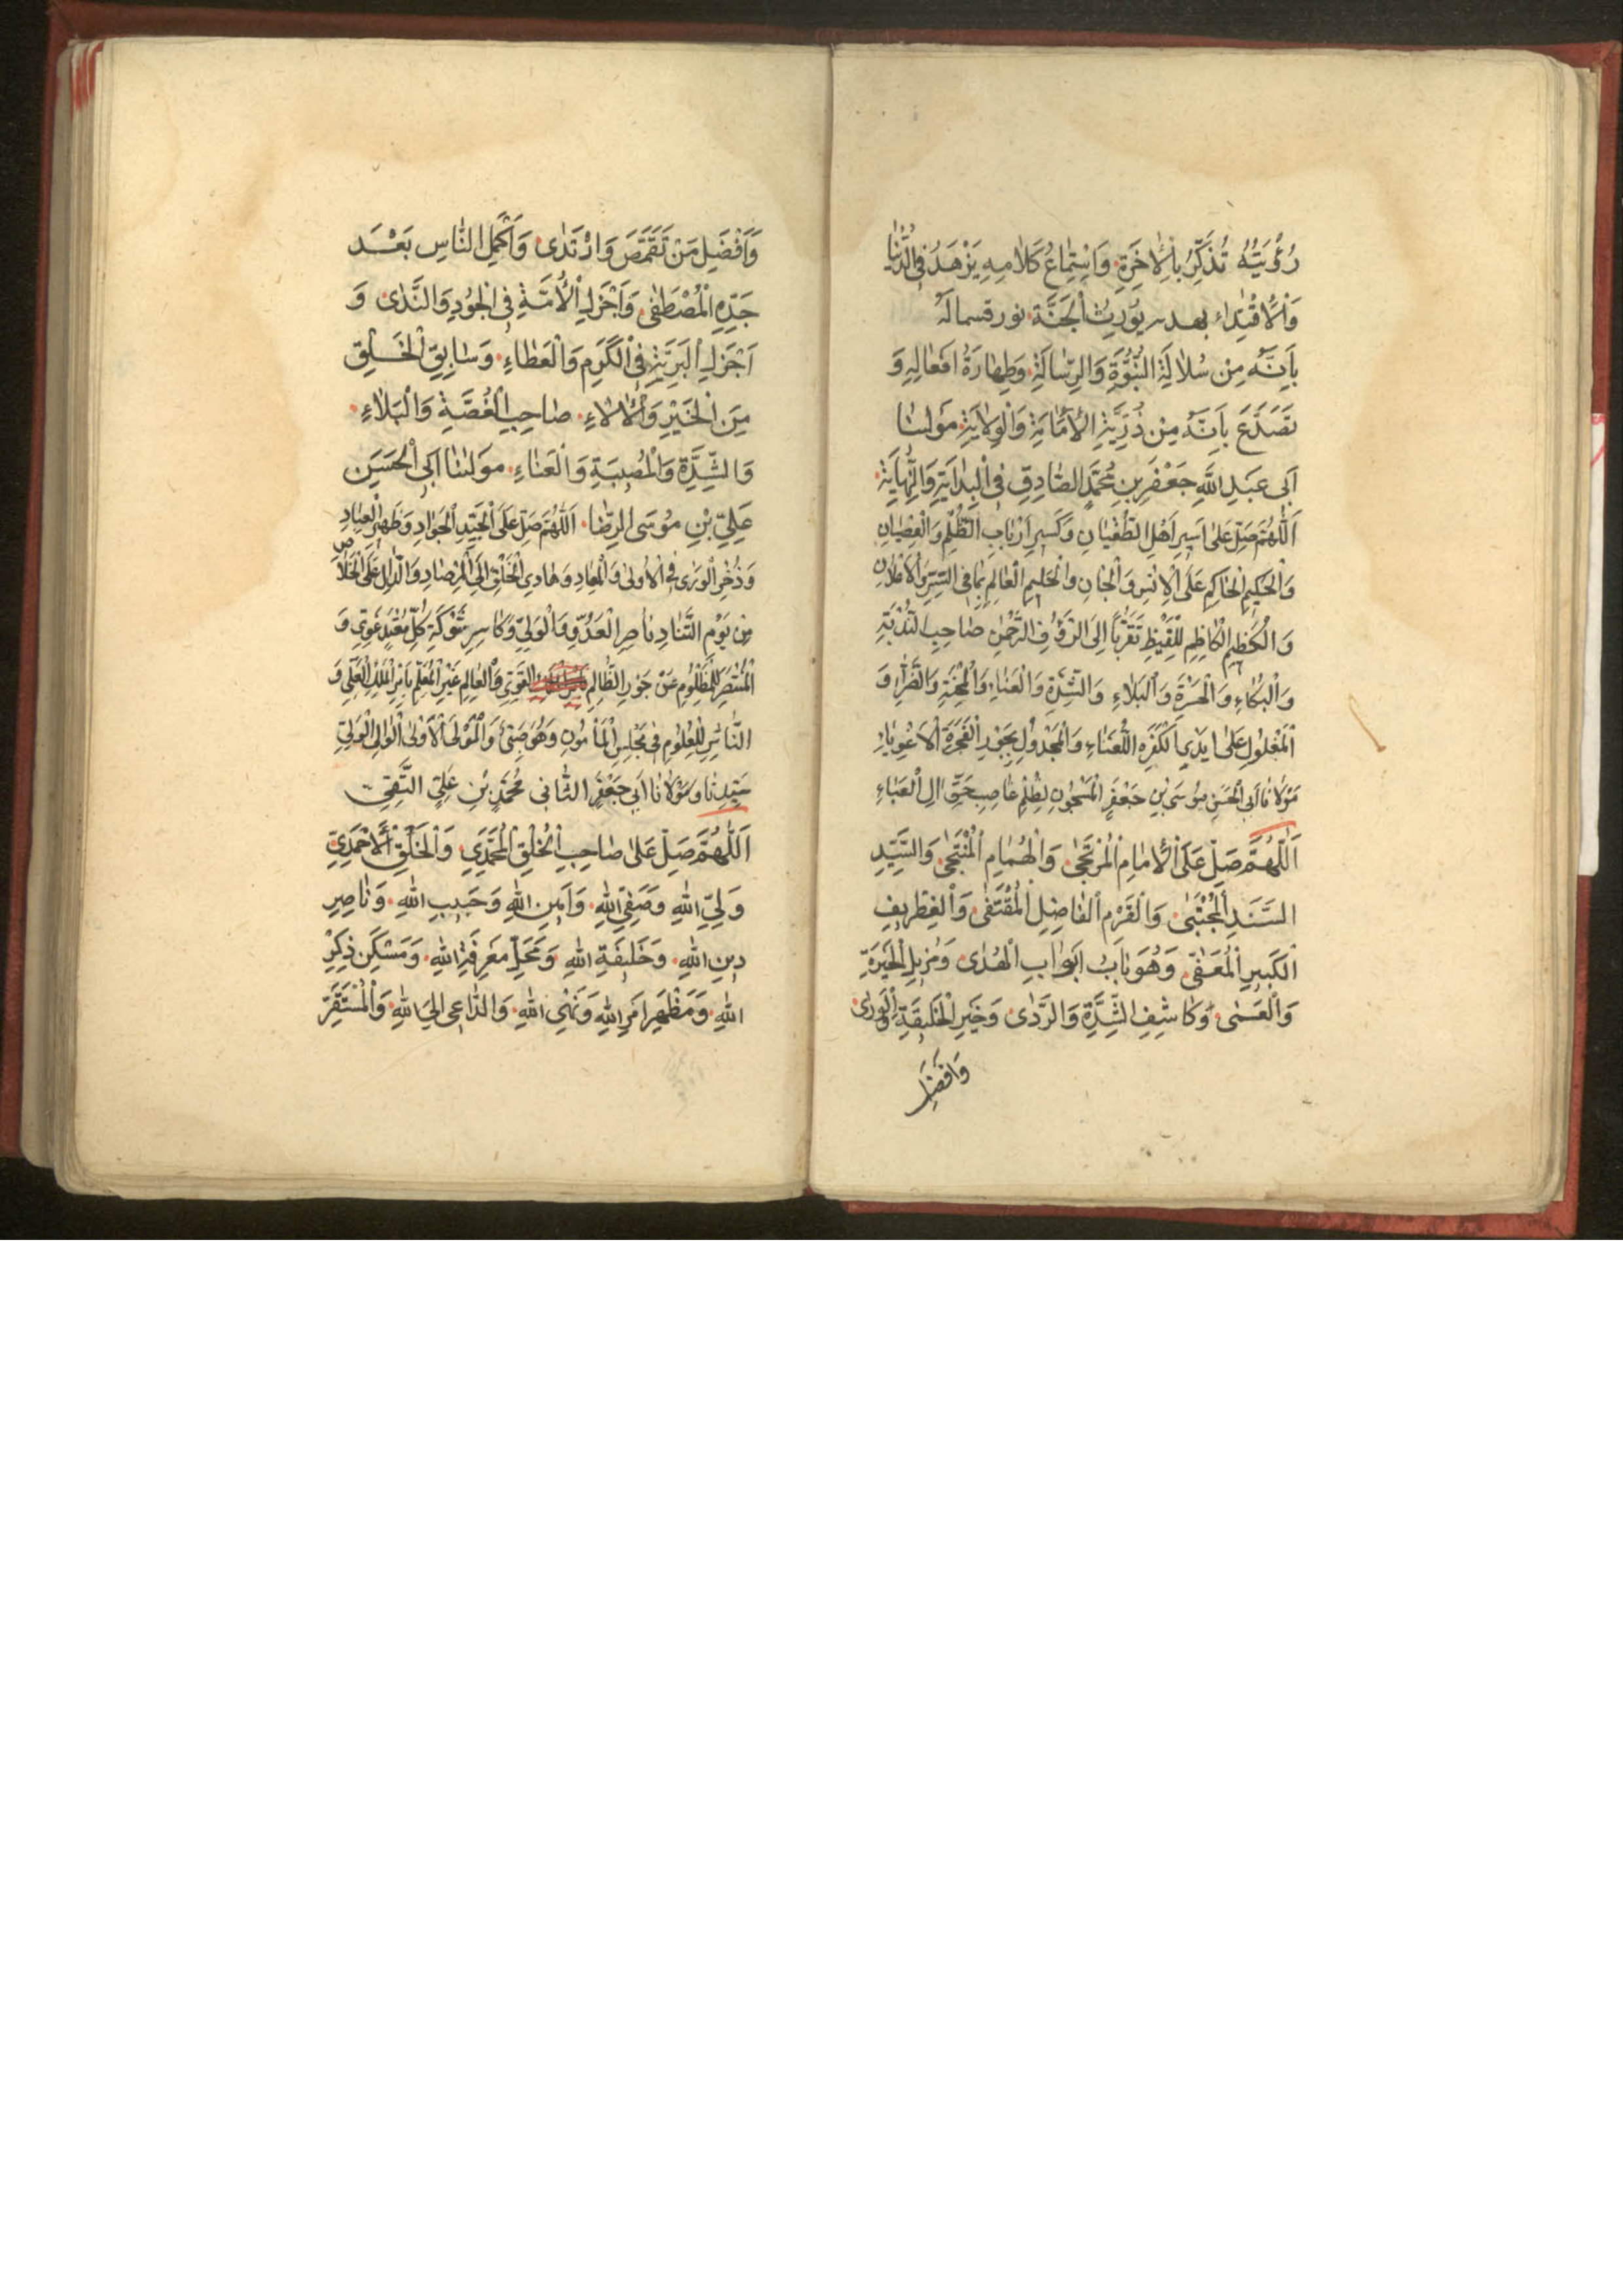 رُؤْيَتُهُ تُذَكِّرُ بِالْاٰخِرَةِ وَاسْتِمَاعُ كَلَامِهِ يَزْهَدُ فِي الدُّنْيَا
وَالْاِقْتِدَاءُ بهديه يُوْرِثُ الْجَنَّةَ نور قسماله
بِاَنَّهُ مِنْ سُلَالَةِ النُّبُوَّةِ وَالرِّسَالَةِ وَطَهَارَةُ اَفْعَالِهِ وَ
تَصَدَّعَ بِاَنَّهُ مِنْ ذُرِّيَّةِ الْاِمَامَةِ وَالْوِلَايَةِ مَوْلٰينَا
اَبِى عَبْدِ اللهِ جَعْفَرِ بْنِ مُحَمَّدٍ الصَّادِقِ فِى الْبِدَايَةِ وَالنِّهَايَةِ
اَللّٰهُمَّ صَلِّ عَلٰى اَسِيرِ اَهْلِ الطُّغْيَانِ وَكَسِيرِ اَرْبَابِ الظُّلْمِ وَالْعِصْيَانِ
وَالْحَكِيْمِ الْحَاكِمِ عَلَى الْاِنْسِ وَالْجَانِ وَالْحَلِيمِ الْعَالِمِ بِمَا فِى السِّرِّ وَالْاِعْلَانِ
وَالْكَظِيْمِ الْكَاظِمِ لِلْغَيْظِ تَقَرُّبًا اِلَى الرَّؤُفِ الرَّحْمٰنِ صَاحِبِ النُّدْبَةِ
وَالْبُكَاءِ وَالْحَسْرَةِ وَالْبَلَاءِ وَالشِّدَّةِ وَالْعَنَاءِ وَالْمِحْنَةِ وَالضَّرَّاءِ وَ
الْمَغْلُولِ عَلٰى اَيْدِى الْكَفَرَةِ اللُّعَنَاءِ وَالْمَجْدُولِ بِجَوْرِ الْفَجَرَةِ الْاَغْوِيَاءِ
مَوْلَانَا اَبِى الْحَسَنِ مُوسَى بْنِ جَعْفَرٍ الْمَسْجُونِ بِظُلْمِ غَاصِبِ حَقِّ اٰلِ الْعَبَاءِ
اَللّٰهُمَّ صَلِّ عَلَى الْاِمَامِ الْمُرْتَجٰى وَالْهُمَامِ الْمُنْتَجٰى وَالسَّيِّدِ
السَّنَدِ الْمُجْتَبٰى وَالْقَرْمِ الْفَاضِلِ الْمُقْتَفٰى وَالْغِطْرِيفِ
الْكَبِيرِ الْمُعَفّٰى وَهُوَ بَابُ اَبْوَابِ الْهُدٰى وَمُزِيلِ الْحَيْرَةِ
وَالْعَمٰى وَكَاشِفِ الشِّدَّةِ وَالرَّدٰى وَخَيْرِ الْخَلِيقَةِ وَالْوَرٰى
وَاَفْضَلِ
وَاَفْضَلِ مَنْ تَقَمَّصَ وَارْتَدٰى وَاَكْمَلِ النَّاسِ بَعْدَ
جَدِّهِ الْمُصْطَفٰى وَاَجْزَلِ الْاُمَّةِ فِى الْجُوْدِ وَالنَّدٰى وَ
اَجْزَلِ الْبَرِيَّةِ فِى الْكَرَمِ وَالْعَطَاءِ وَسَابِقِ الْخَلْقِ
مِنَ الْخَيْرِ وَالْاٰلَاءِ صَاحِبِ الْغُصَّةِ وَالْبَلَاءِ
وَالشِّدَّةِ وَالْمُصِيبَةِ وَالْعَنَاءِ مَوْلٰينَا اَبِى الْحَسَنِ
عَلِيِّ بْنِ مُوسَى الرِّضَا اَللّٰهُمَّ صَلِّ عَلَى الْجَيِّدِ الْجَوَادِ وَظَهْرِ الْعِبَادِ
وَذُخْرِ الْوَرٰى فِى الْاُولٰى وَالْمَعَادِ وَهَادِى الْخَلْقِ اِلَى الرَّصَادِ وَالدَّالِّ عَلَى الْخَلَاص
مِنْ يَوْمِ التَّنَادِ نَاصِرِ الْعَدُوِّ وَالْوَلِيِّ وَكَاسِرِ شَوْكَةِ كُلِّ مُعْتَدٍ غَوِيٍّ وَ
الْمُنْتَصِرِ لِلْمَظْلُومِ عَنْ جَوْرِ الظَّالِمِ الْقَوِيِّ وَالْعَالِمِ غَيْرِ الْمُعَلَّمِ بِاَمْرِ الْمَلِكِ الْعَلِيِّ وَ
النَّاشِرِ لِلْعُلُومِ فِى مَجْلِسِ الْمَأْمُونِ وَهُوَ صَبِيٌّ وَالْمَوْلَى الْاَوْلٰى الْوَالِى الْوَلِيِّ
سَيِّدِنَا وَمَوْلَانَا اَبِى جَعْفَرٍ الثَّانِى مُحَمَّدِ بْنِ عَلِيٍّ التَّقِيِّ
اَللّٰهُمَّ صَلِّ عَلٰى صَاحِبِ الْخُلُقِ الْمُحَمَّدِيِّ وَالْخَلْقِ الْاَحْمَدِيِّ
وَلِيِّ اللهِ وَصَفِيِّ اللهِ وَاَمِينِ اللهِ وَحَبِيبِ اللهِ وَنَاصِرِ
دِينِ اللهِ وَخَلِيفَةِ اللهِ وَمَحَلِّ مَعْرِفَةِ اللهِ وَمَسْكَنِ ذِكْرِ
اللهِ وَمَظْهَرِ اَمْرِ اللهِ وَنَهْيِ اللهِ وَالدَّاعِى اِلَى اللهِ وَالْمُسْتَقِرِّ